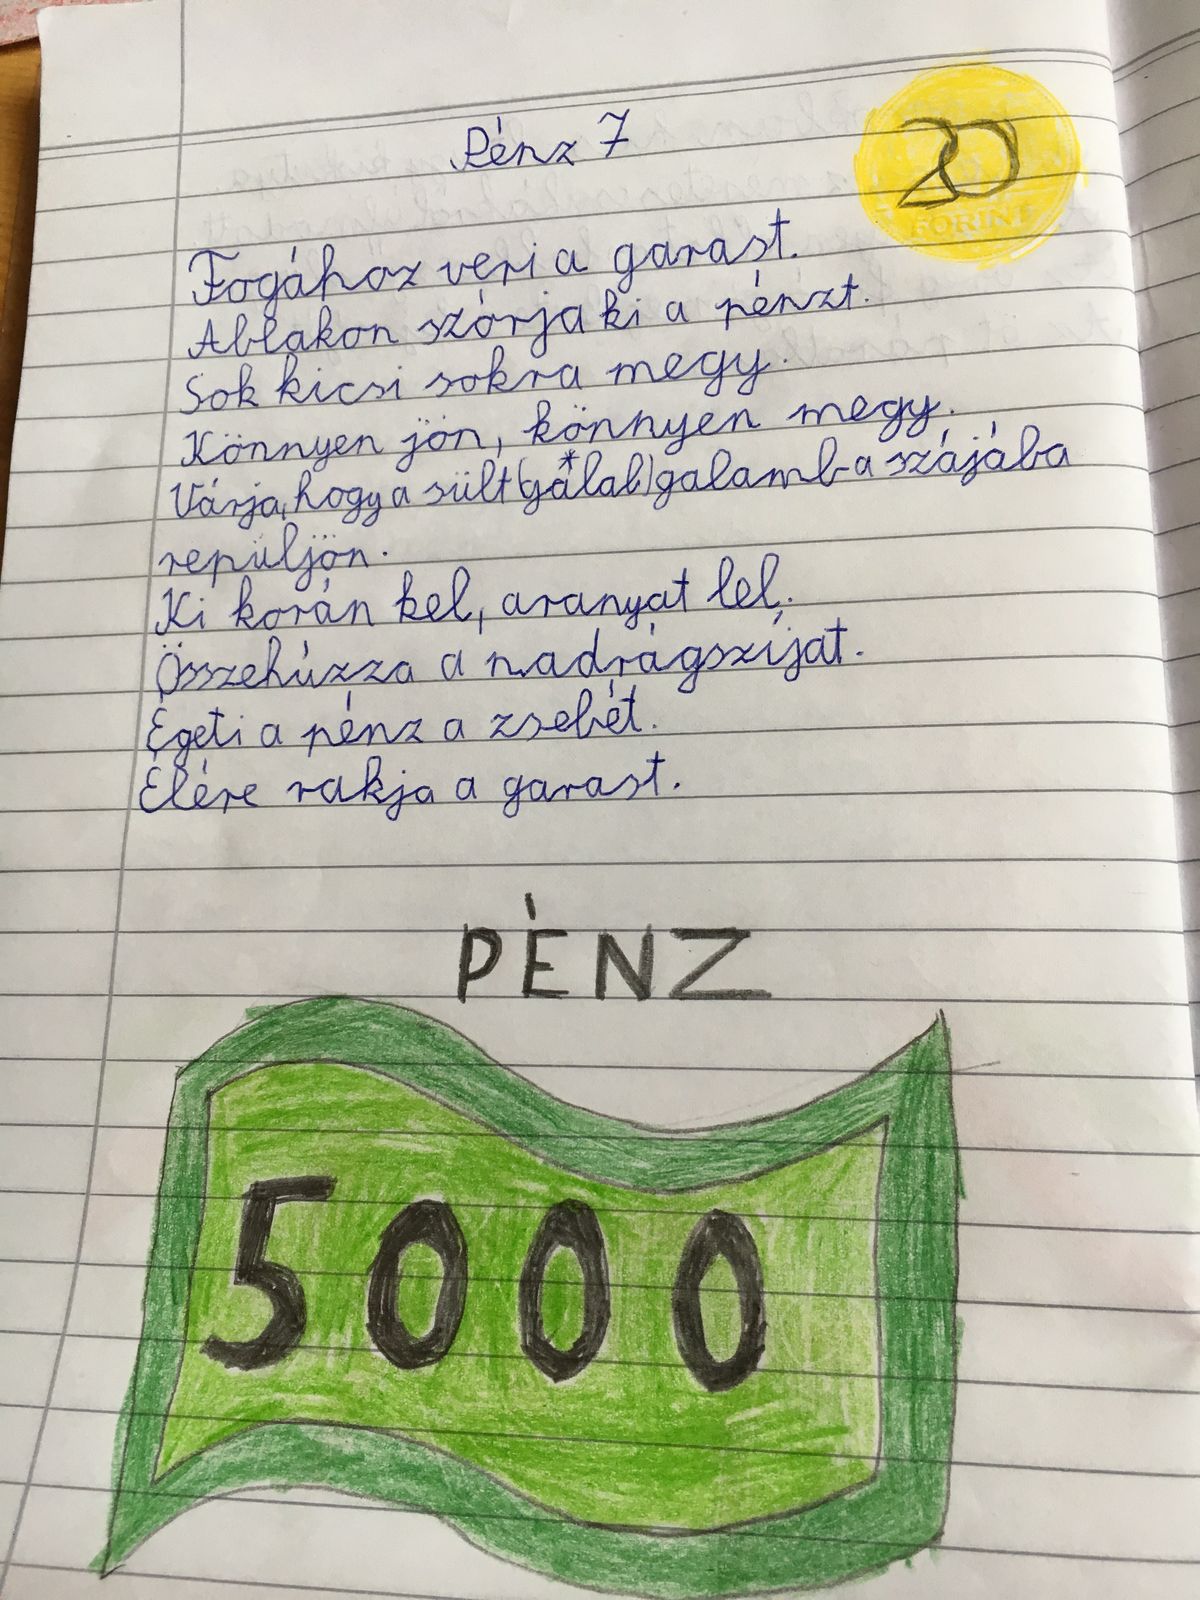 Pénz 7
20
FORINT
Fogához veri a garast.
Ablakon szórja ki a pénzt.
Sok kicsi sokra megy.
Könnyen jön, könnyen megy.
Várja, hogy a sült (gálab)* galamb a szájába
repüljön.
Ki korán kel, aranyat lel.
Összehúzza a nadrágszíjat.
Égeti a pénz a zsebét.
Élére rakja a garast.
PÉNZ
5000